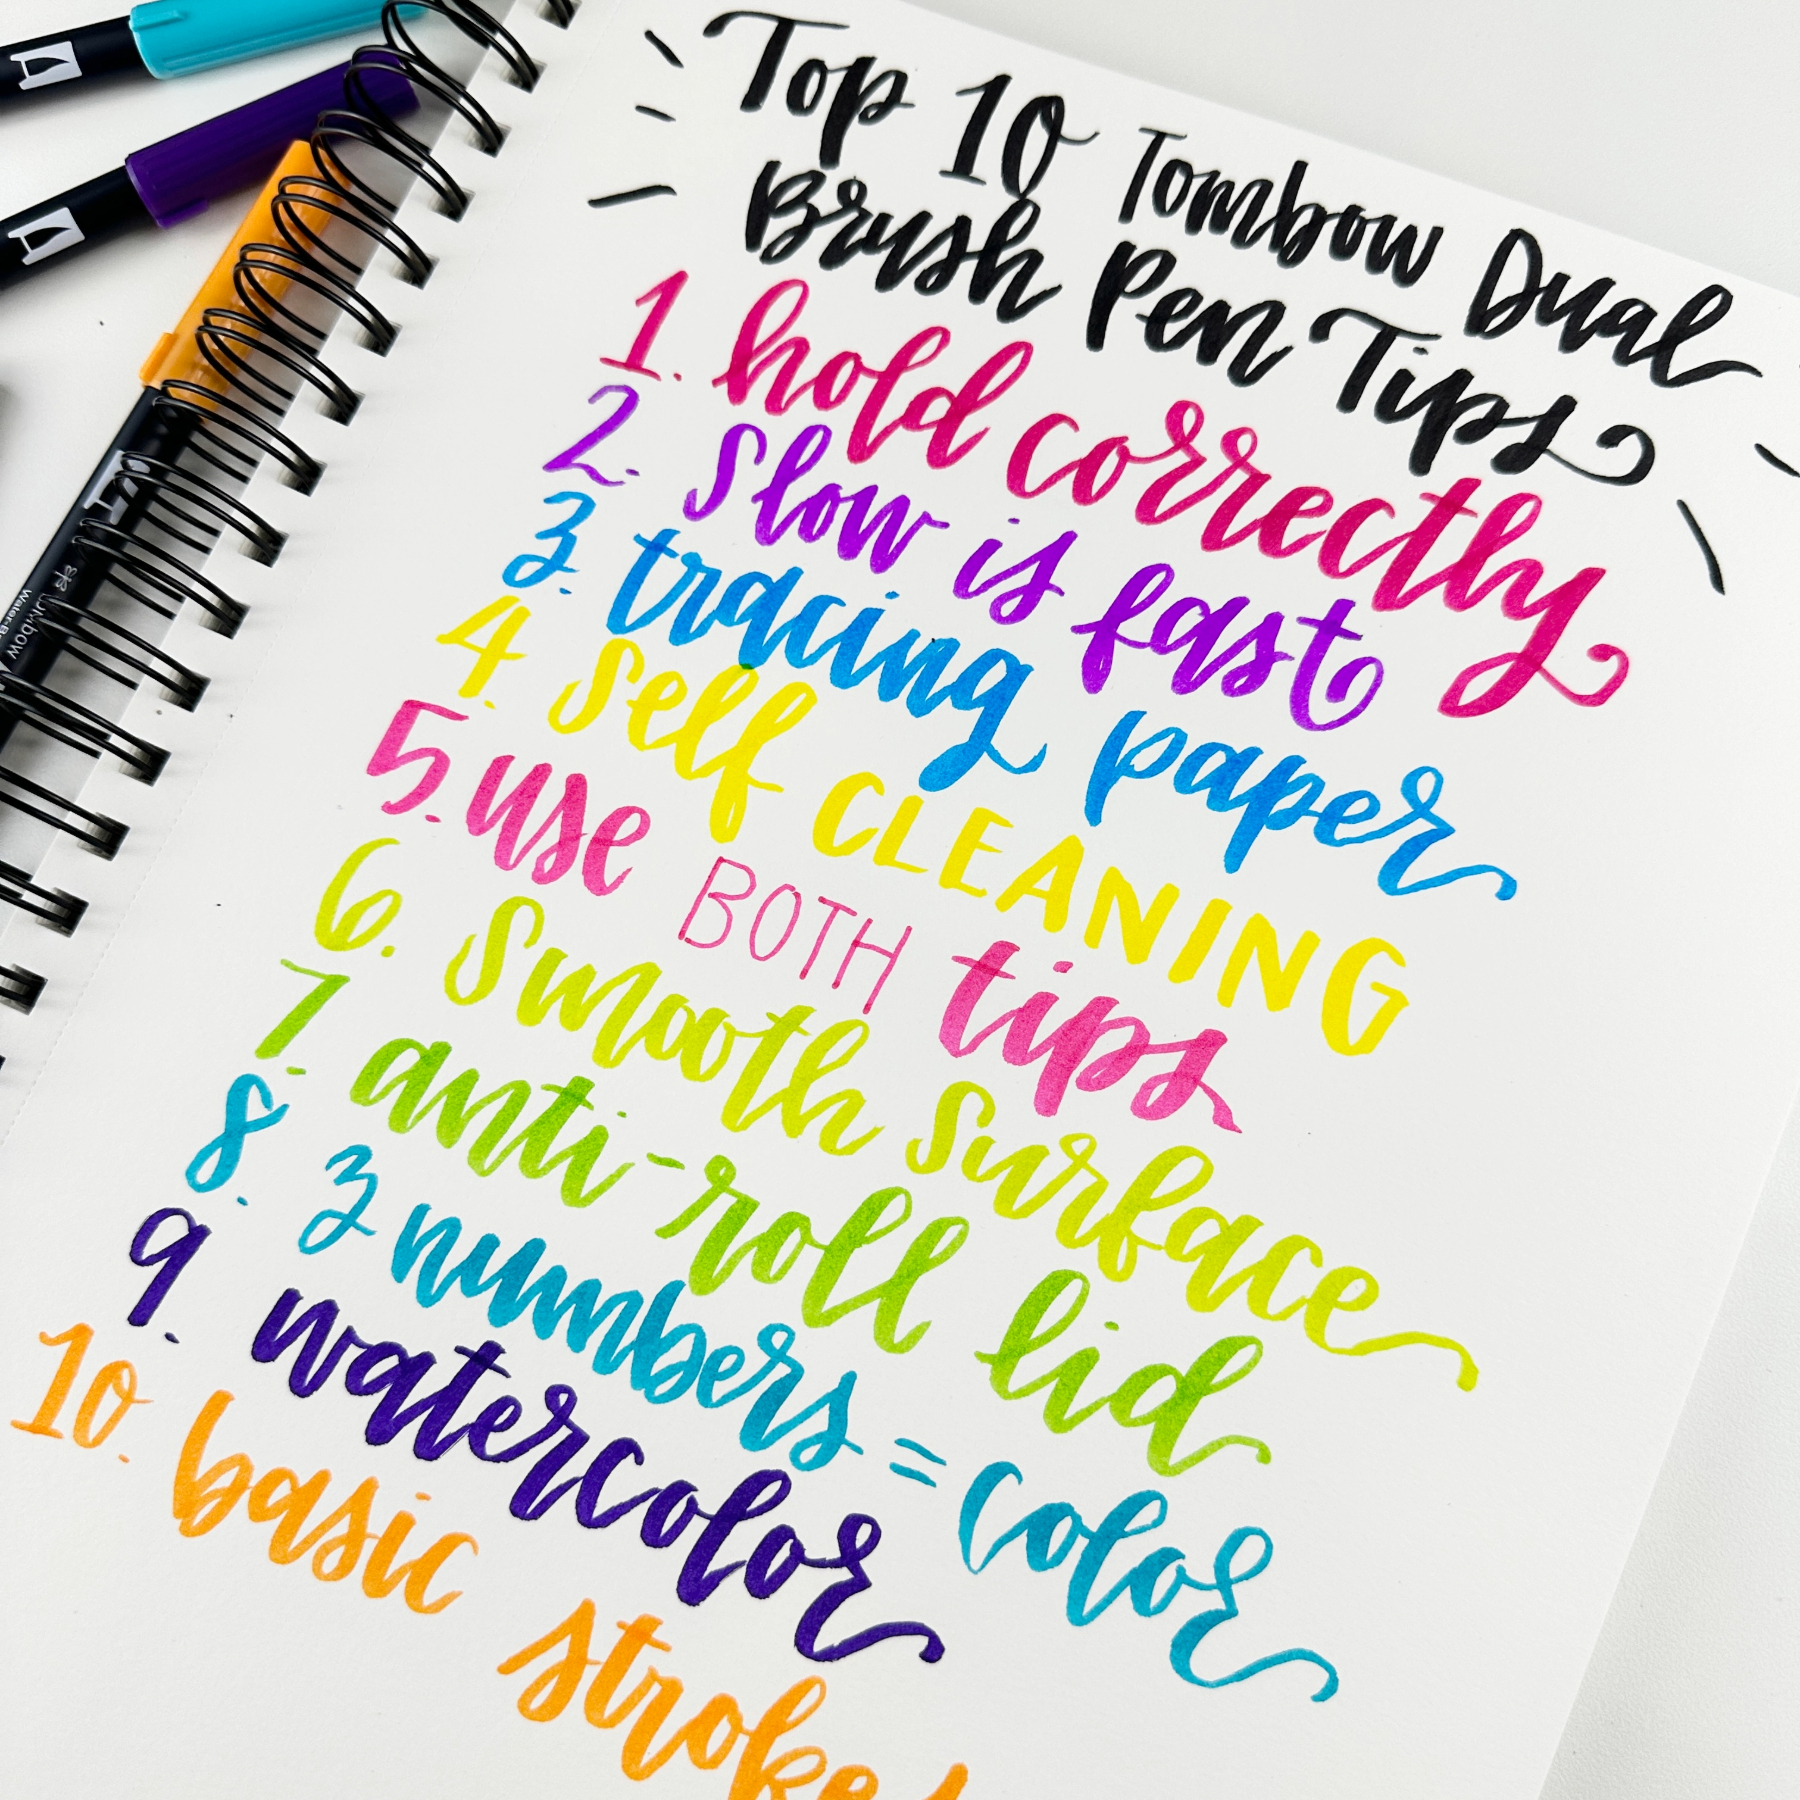 Top 10 Tombow Dual
Brush Pen Tips
1. hold correctly
2. slow is fast
3. tracing paper
4. self CLEANING
5. use BOTH tips
6. smooth surface
7. anti-roll lid
8. 3 numbers = color
9. watercolor
10. basic strokes